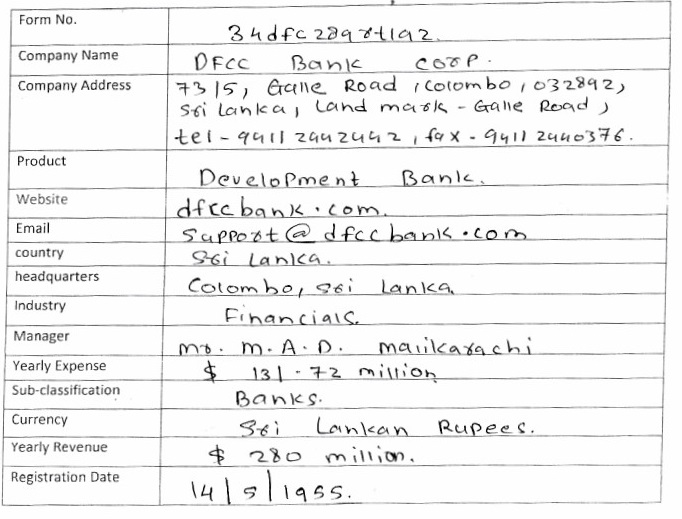 Form No. 34dfc289rt192
Company Name DFCC Bank corp.
Company Address 73/5, Galle Road, Colombo, 032892,
Sri Lanka, Land mark - Galle Road,
tel - 94112442442, fax - 94112440376.
Product Development Bank.
Website dfccbank.com.
Email Support@dfccbank.com
country Sri Lanka.
headquarters Colombo, Sri Lanka
Industry Financials.
Manager Mr. M.A.D. Malikarachi
Yearly Expense $ 131.72 million
Sub-classification Banks.
Currency Sri Lankan Rupees.
Yearly Revenue $ 280 million.
Registration Date 14/5/1955.